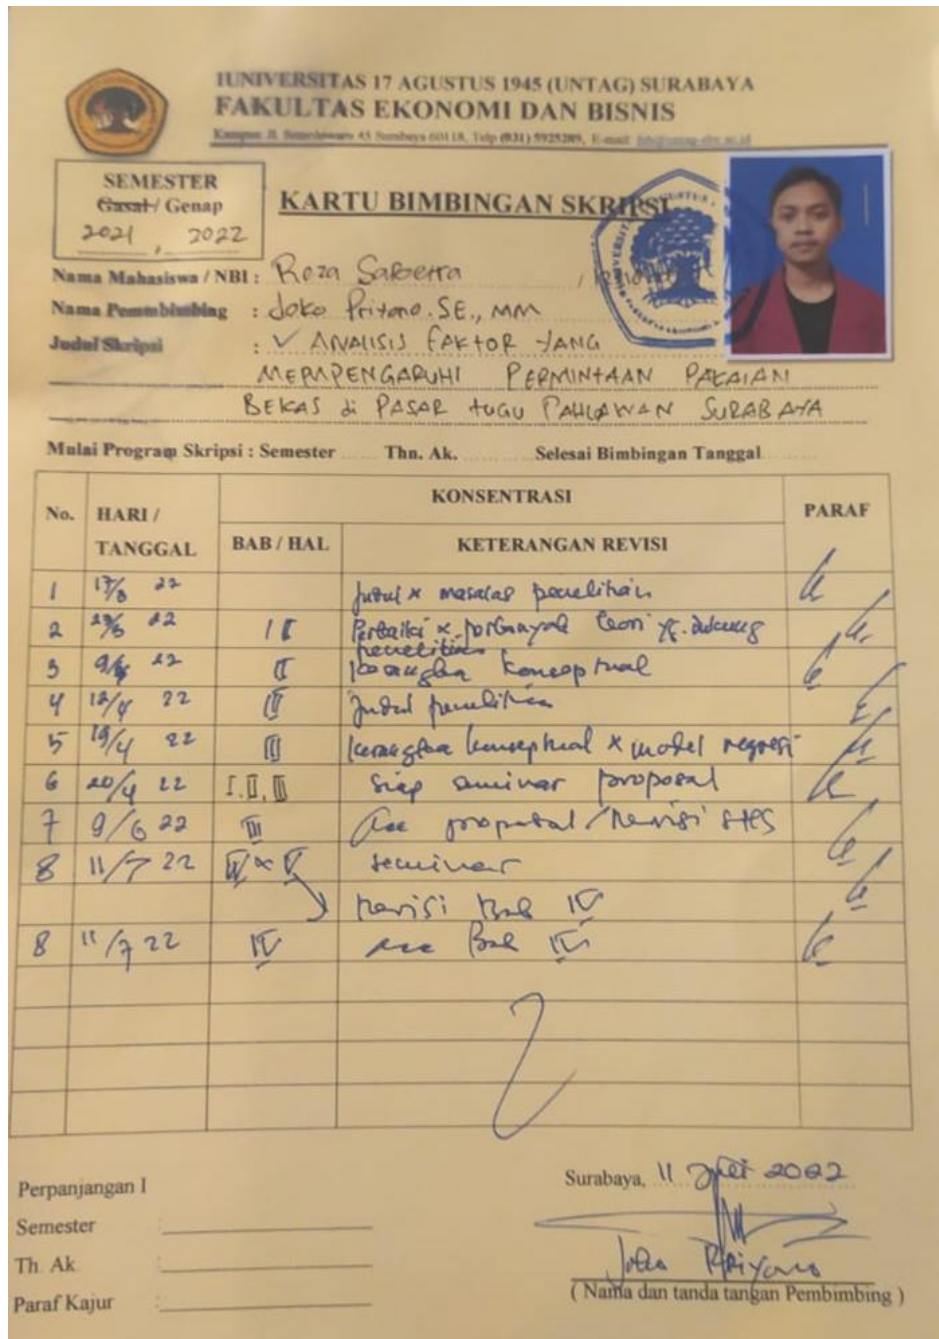 IUNIVERSITAS 17 AGUSTUS 1945 (UNTAG) SURABAYA
FAKULTAS EKONOMI DAN BISNIS
Kampus: Jl. Semolowaru 45 Surabaya 60118, Telp (031) 5925289, E-mail
SEMESTER
Gasal / Genap
2021 , 2022
KARTU BIMBINGAN SKRIPSI
Nama Mahasiswa / NBI : Reza /
Nama Pemmbimbing : Joko Priyono. SE., MM
Judul Skripsi : ANALISIS FAKTOR YANG
MEMPENGARUHI PERMINTAAN PAKAIAN
BEKAS di PASAR tUGU PAHLAWAN SURABAYA
Mulai Program Skripsi : Semester Thn. Ak. Selesai Bimbingan Tanggal
No. HARI / TANGGAL KONSENTRASI PARAF
BAB / HAL KETERANGAN REVISI
1 17/3 22 Judul & masalah penelitian
2 22 Perbaiki & teori yg. dukung
penelitian
3 22 II konseptual
4 12/4 22 III Judul penelitian
5 19/4 22 III kerangka konseptual & model regresi
6 20/4 22 I. II, III siap seminar proposal
7 9/6 22 III Acc proposal / Revisi
8 11/7 22 IV & V seminar
Revisi Bab IV
8 11/7 22 IV acc Bab IV
Perpanjangan I
Semester :
Th. Ak
Paraf Kajur :
Surabaya, 11 Juli 2022
Joko Priyono
( Nama dan tanda tangan Pembimbing )